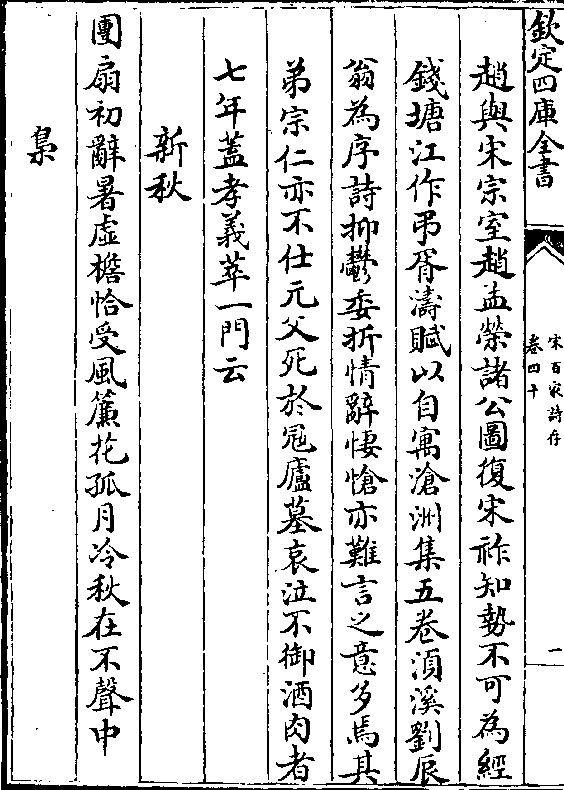 欽定四庫全書
宋百家詩存
卷四十
一
趙與宋宗室趙孟榮諸公圖復宋祚知勢不可為經
錢塘江作弔胥濤賦以自寓滄洲集五卷湏溪劉辰
翁為序詩抑鬱委折情辭悽愴亦難言之意多焉其
弟宗仁亦不仕元父死於冦廬墓哀泣不御酒肉者
七年蓋孝義萃一門云
新秋
團扇初辭暑虛檐恰受風簾花孤月冷秋在不聲中
梟